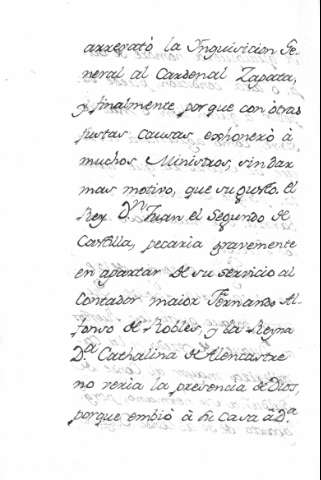 arrevató la Inquisicion Ge-
neral al Cardenal Zapata,
y finalmente porque con otras
justas causas, exhonerò à
muchos Ministros, sin dar
mas motivo, que su gusto. El
Rey D.ⁿ Juan el Segundo de
Castilla, pecaria gravemente
en apartar de su servicio al
Contador maior Fernando Al-
fonso de Robles, y la Reyna
D.ª Cathalina de Alencastre
no veria la presencia de Dios,
porque embiò à su Casa à D.ª